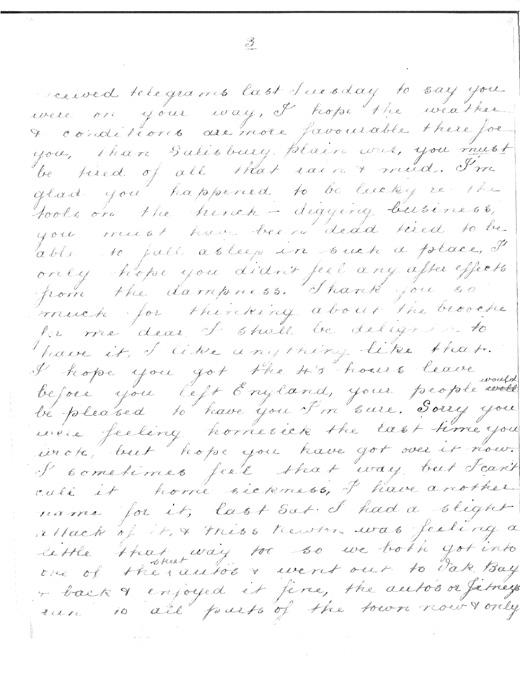 3
received telegrams last Tuesday to say you
were on your way, I hope the weather
& conditions are more favourable there for
you, than Salisbury plain was, you must
be tired of all that rain & mud. I'm
glad you happened to be lucky re the
tools on the trench - digging business,
you must have been dead tired to be
able to fall asleep in such a place, I
only hope you didn't feel any after effects
from the dampness. Thank you so
much for thinking about the brooche
for me dear I shall be delighted to
have it, I like anything like that.
I hope you got the 48 hours leave
before you left England, your people would
be pleased to have you I'm sure. Sorry you
were feeling homesick the last time you
wrote, but hope you have got over it now.
I sometimes feel that way but I can't
call it home sickness, I have another
name for it, last Sat. I had a slight
attack of it, & Miss was feeling a
little that way too so we both got into
one of the street autos & went out to Oak Bay
& back & enjoyed it fine, the autos or Jitneys
run to all parts of the town now & only